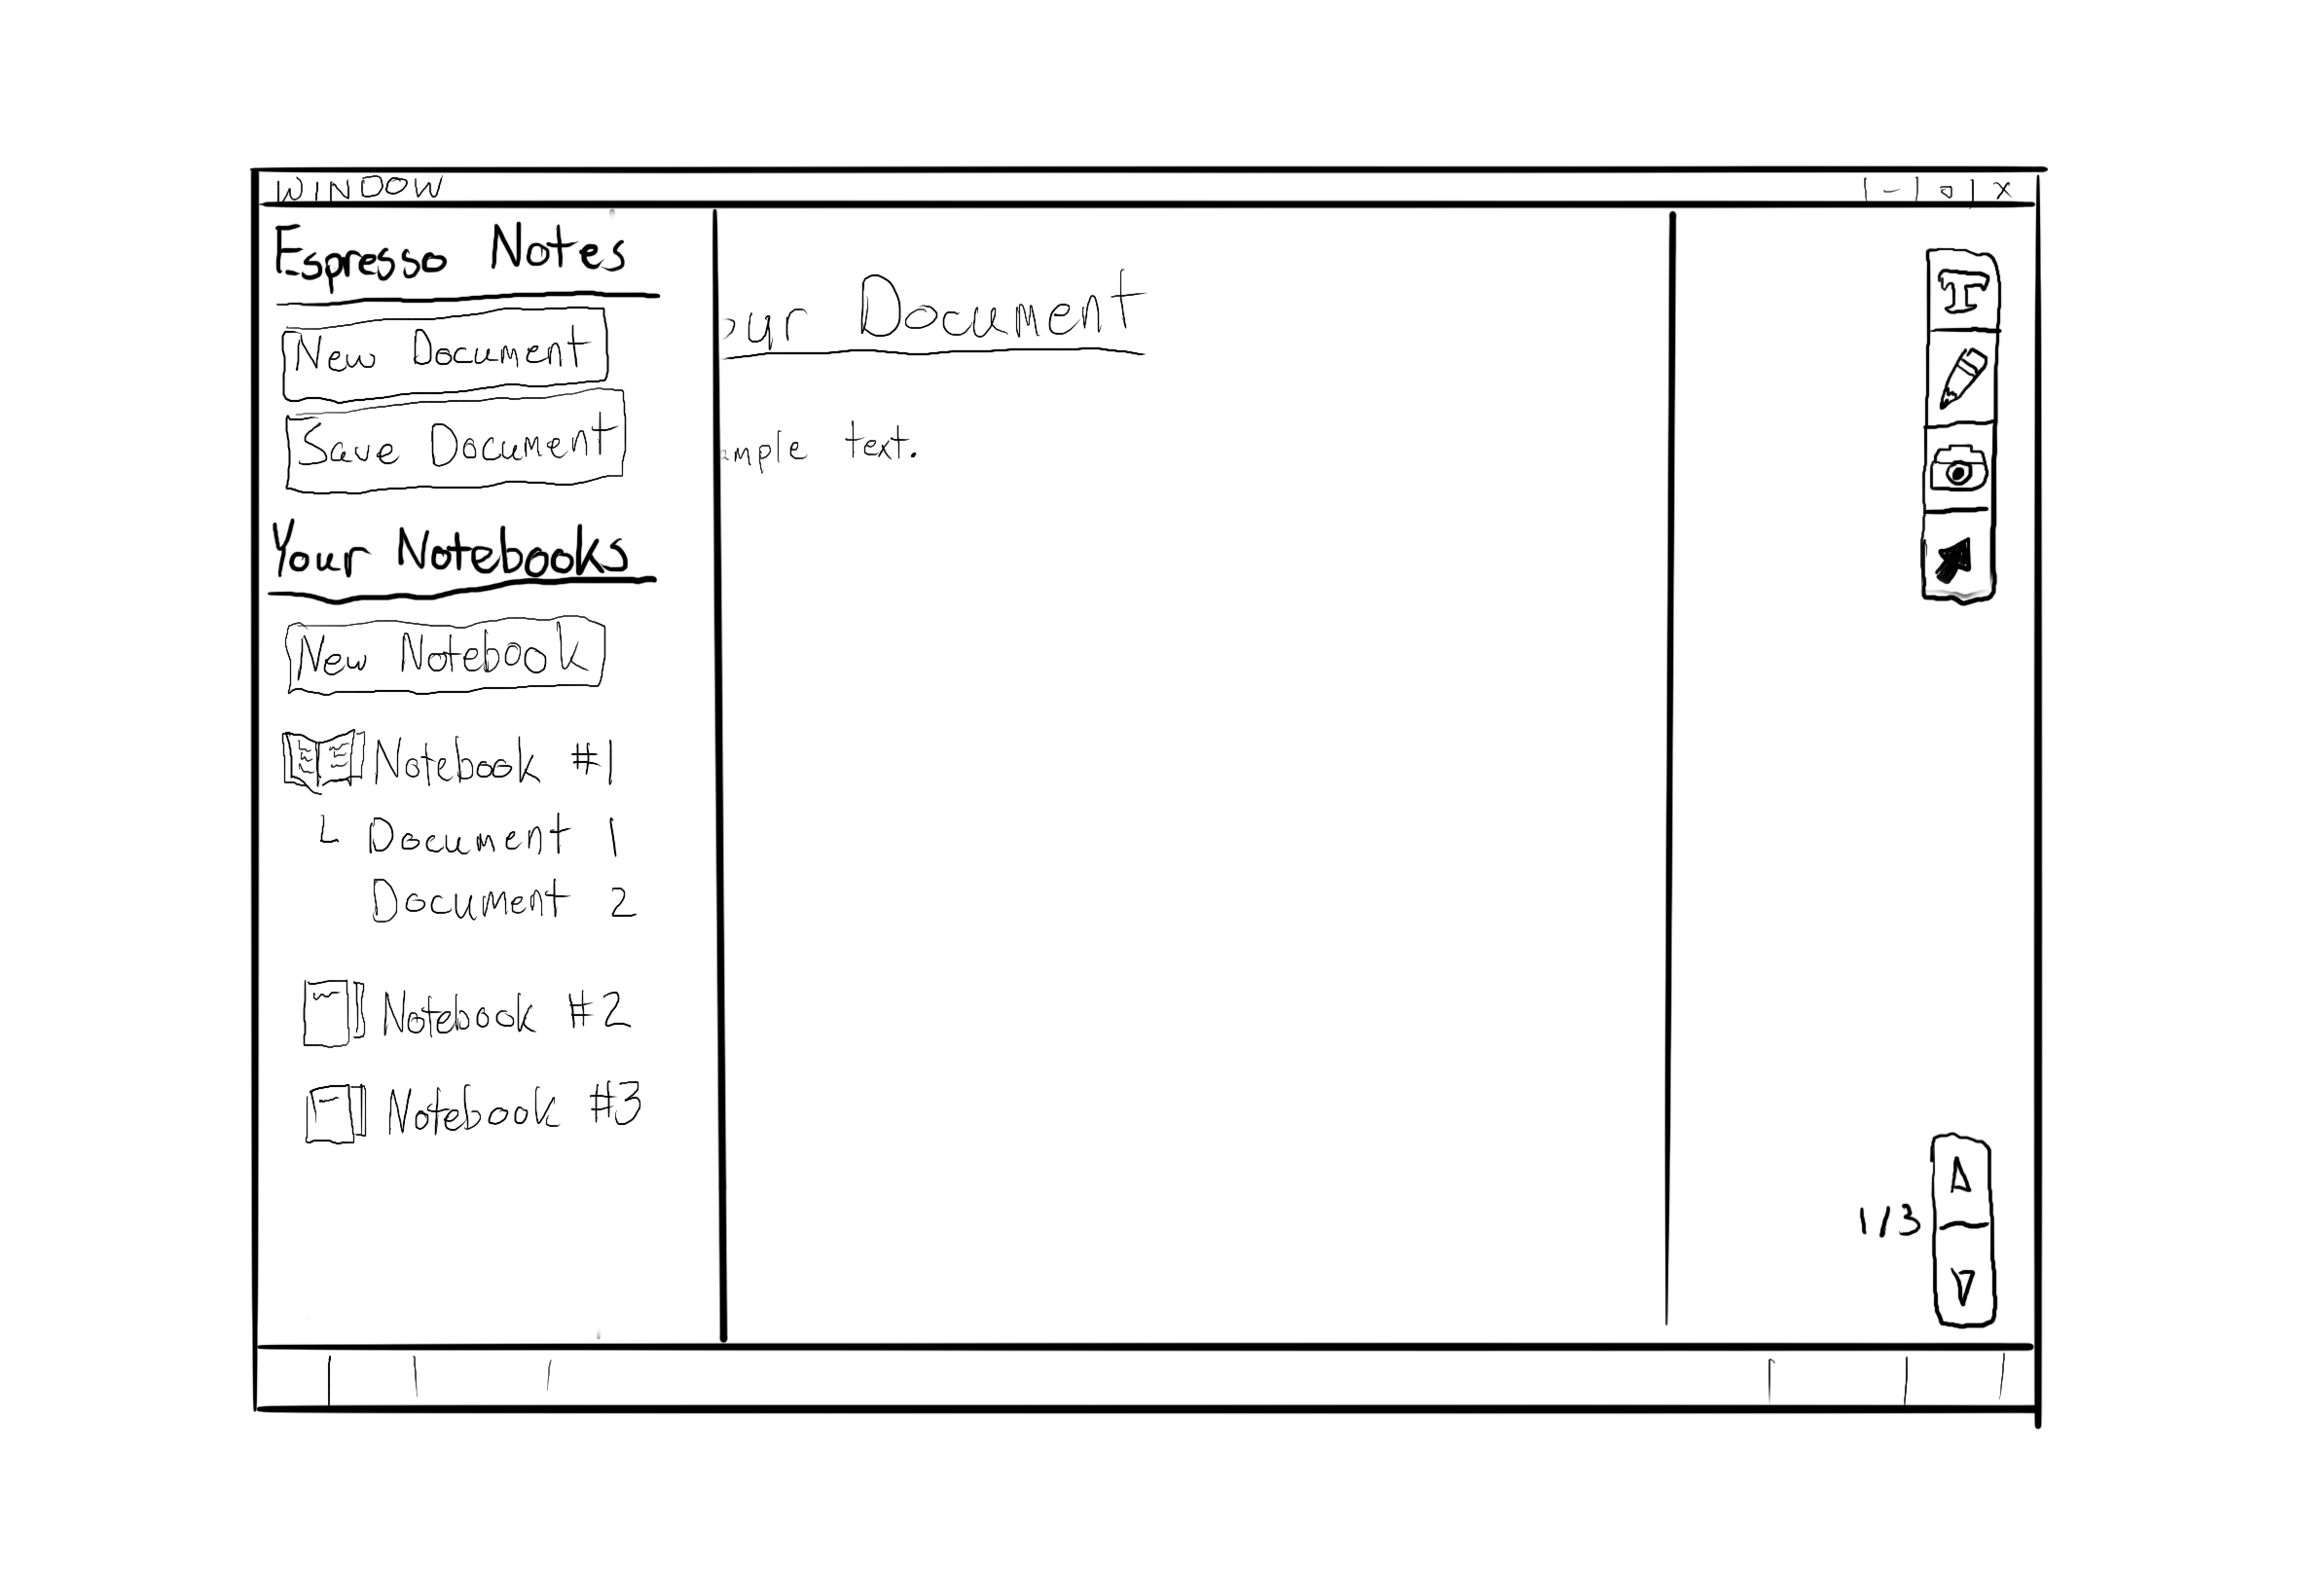 WINDOW - □ X
Espresso Notes
New Document
Save Document
Your Notebooks
New Notebook
Notebook #1
Document 1
Document 2
Notebook #2
Notebook #3
our Document
ample text.
T
1/3